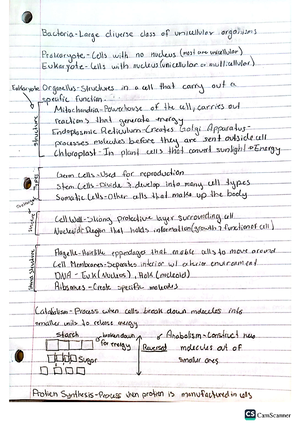 Bacteria-Large diverse class of unicellular organisms
Prokaryote-Cells with no nucleus (most are unicellular)
Eukaryote-Cells with nucleus (unicellular or multicellular)
Eukaryote Organelles-Structures in a cell that carry out a
specific function.
Mitochondria-Powerhouse of the cell, carries out
reactions that generate energy
Endoplasmic Reticulum-Creates Golgi Apparatus-
processes molecules before they are sent outside cell
Chloroplast-In plant cells that convert sunlight→Energy
Structure
Germ Cells-Used for reproduction
Stem Cells-Divide & develop into many cell types
Somatic Cells-Other cells that make up the body
Types
Cell Wall-Strong protective layer surrounding cell
Nucleoid Region that holds information (growth & function of cell)
Flagella-Hairlike appendage that enable cells to move around
Cell Membranes-Separates interior w/ exterior environment
DNA - Euk (Nucleus), Pok (nucleoid)
Ribosomes-Create specific molecules
Catabolism-Process when cells break down molecules into
smaller units to release energy
Starch
broken down
for energy
Sugar
Reversed
Anabolism-Construct new
molecules out of
smaller ones
Protein Synthesis-Process when protein is manufactured in cells
CS CamScanner